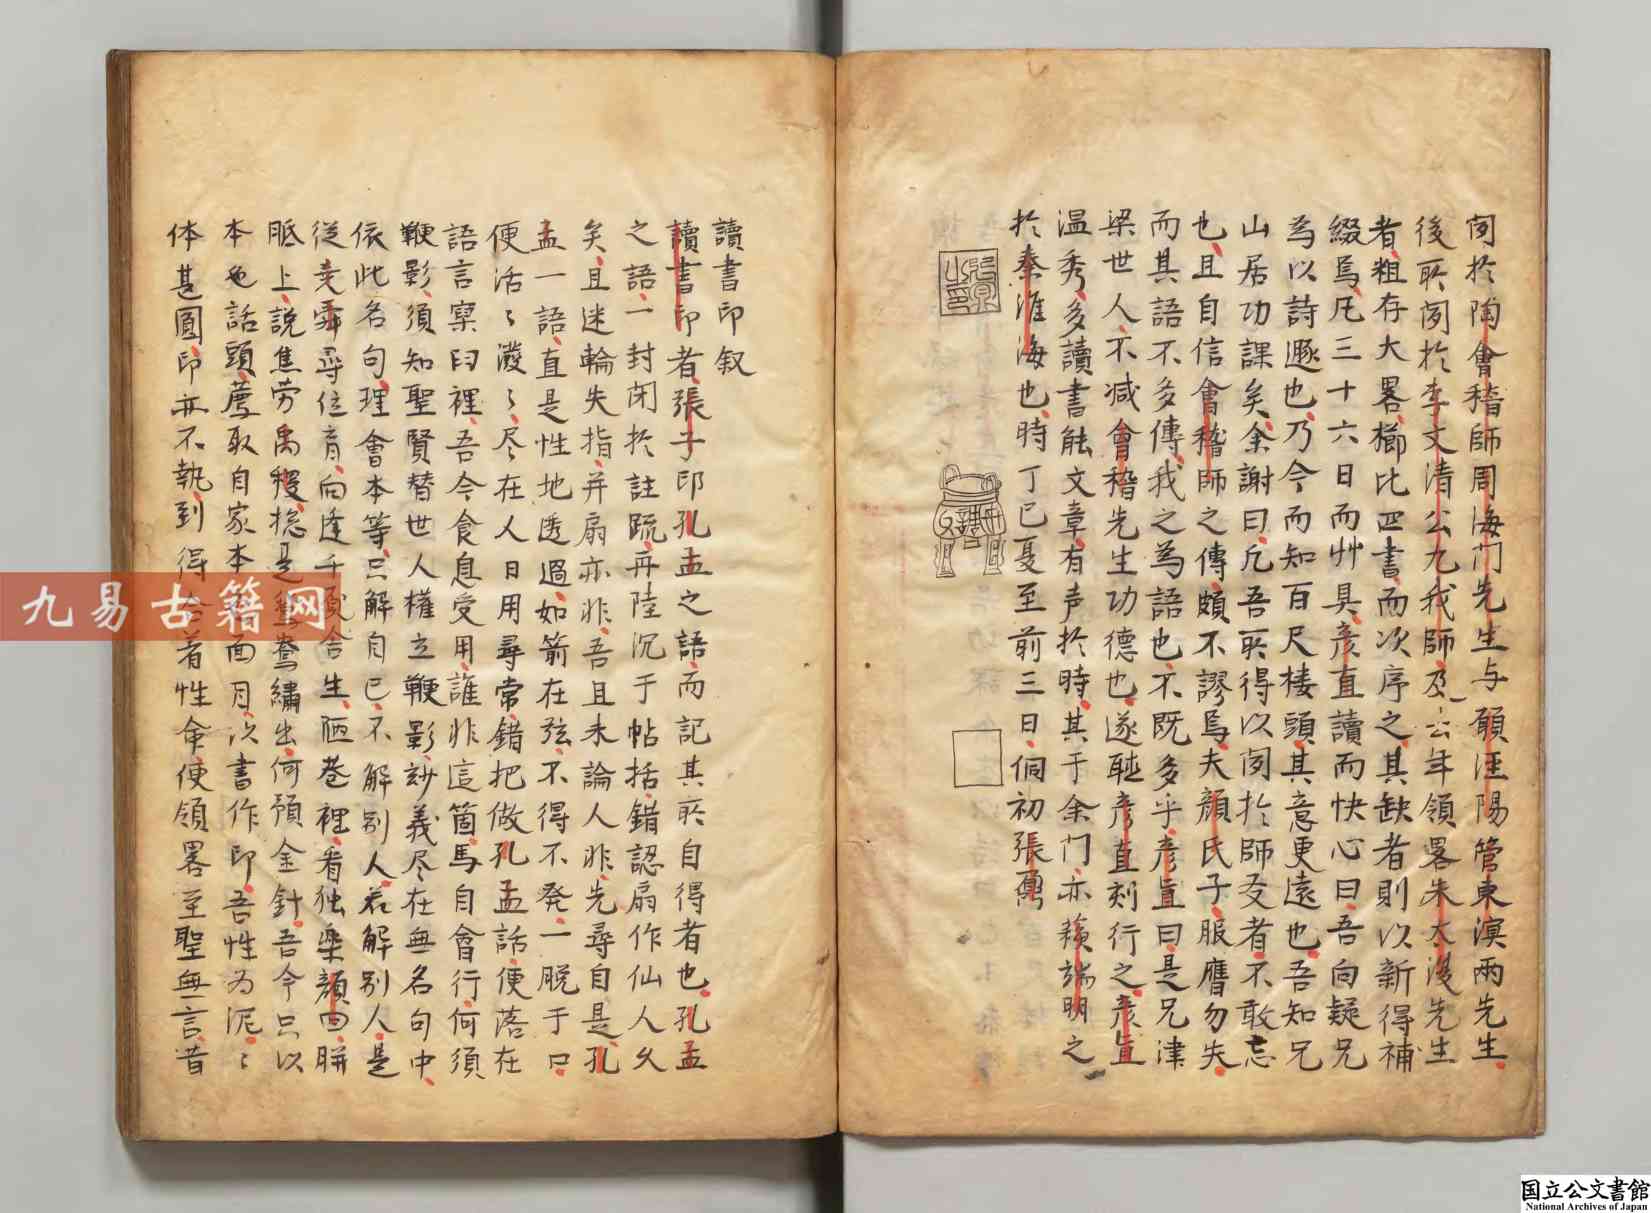 闻於陶會稽師周海门先生与顧涇陽管東溟兩先生
後所闻於李文清公九我師及云年領畧朱太復先生
者粗存大畧櫛比四書而次序之其缺者則以新得補
綴焉凡三十六日而艸具彦直讀而快心曰吾向疑兄
為以詩遯也乃今而知百尺楼頭其意更遠也吾知兄
山居功課矣余謝曰凡吾所得以闻於師友者不敢忘
也且自信會稽師之傳頗不謬焉夫顏氏子服膺勿失
而其語不多傳我之為語也不既多乎彦直曰是兄津
梁世人不减會稽先生功德也遂聽彦直刻行之彦直
温秀多讀書能文章有声於時其于余门亦蘓端明之
於秦淮海也時丁巳夏至前三日侗初張鼐
讀書印叙
讀書印者張子印孔孟之語而記其所自得者也孔孟
之語一封闭於註疏再陸沉于帖括錯認扇作仙人久
矣且迷輪失指并扇亦非吾且未論人非先尋自是孔
孟一語直是性地透過如箭在弦不得不発一脱于口
便活〻潑〻尽在人日用尋常錯把做孔孟話便落在
語言窠臼裡吾今食息受用誰非這箇馬自會行何須
鞭影須知聖賢替世人權立鞭影妙義尽在無名句中
依此名句理會本等只解自己不解别人若解别人是
從尭舜尋位育向逢千覓舍生陋巷裡看独樂顏回胼
胝上說焦劳禹稷揔是鴛鴦繡出何預金針吾今只以
本色話頭薦取自家本来面目以書作印吾性为泥〻
体甚圓印亦不執到得合着性命便領畧至聖無言昔
九易古籍网
国立公文書館
National Archives of Japan